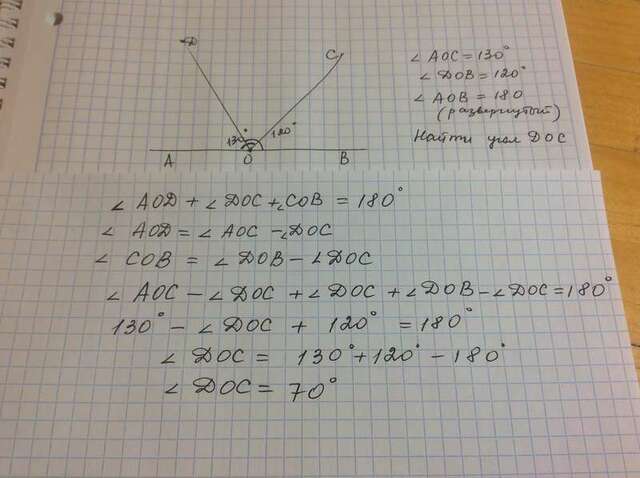 D
C
130°
120°
A
O
B
∠ AOC = 130°
∠ DOB = 120°
∠ AOB = 180
(развернутый)
Найти угол DOC
∠ AOD + ∠ DOC + ∠COB = 180°
∠ AOD = ∠ AOC - ∠DOC
∠ COB = ∠ DOB - ∠DOC
∠ AOC - ∠ DOC + ∠ DOC + ∠ DOB - ∠ DOC = 180°
130° - ∠ DOC + 120° = 180°
∠ DOC = 130° + 120° - 180°
∠ DOC = 70°